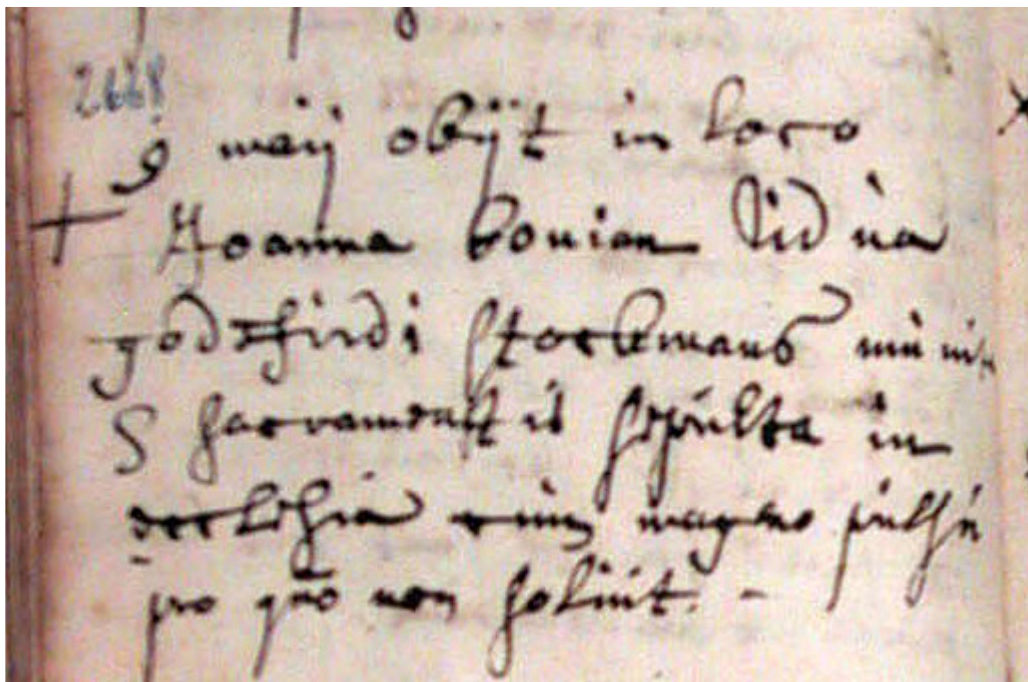 2668
9 maij obijt in loco
+ Joanna bouian vidua
godefridi stockmans munita
S sacramentis sepulta in
ecclesia cum magno pulsu
pro quo non soluit. -